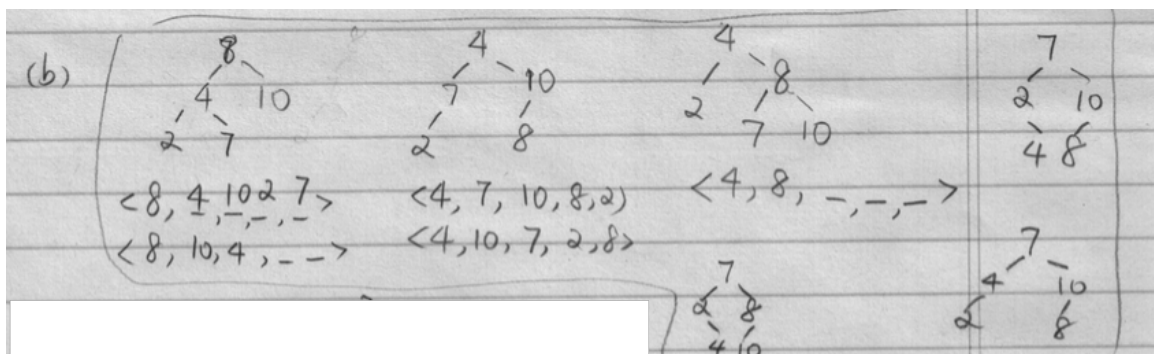 (b)
8
4 10
2 7
<8, 4, 10, 2, 7>
<8, 10, 4, _ _>
4
7 10
2 8
<4, 7, 10, 8, 2)
<4, 10, 7, 2, 8>
4
2 8
7 10
<4, 8, _, _, _>
7
2 8
4 10
7
2 10
4 8
7
4 10
2 8